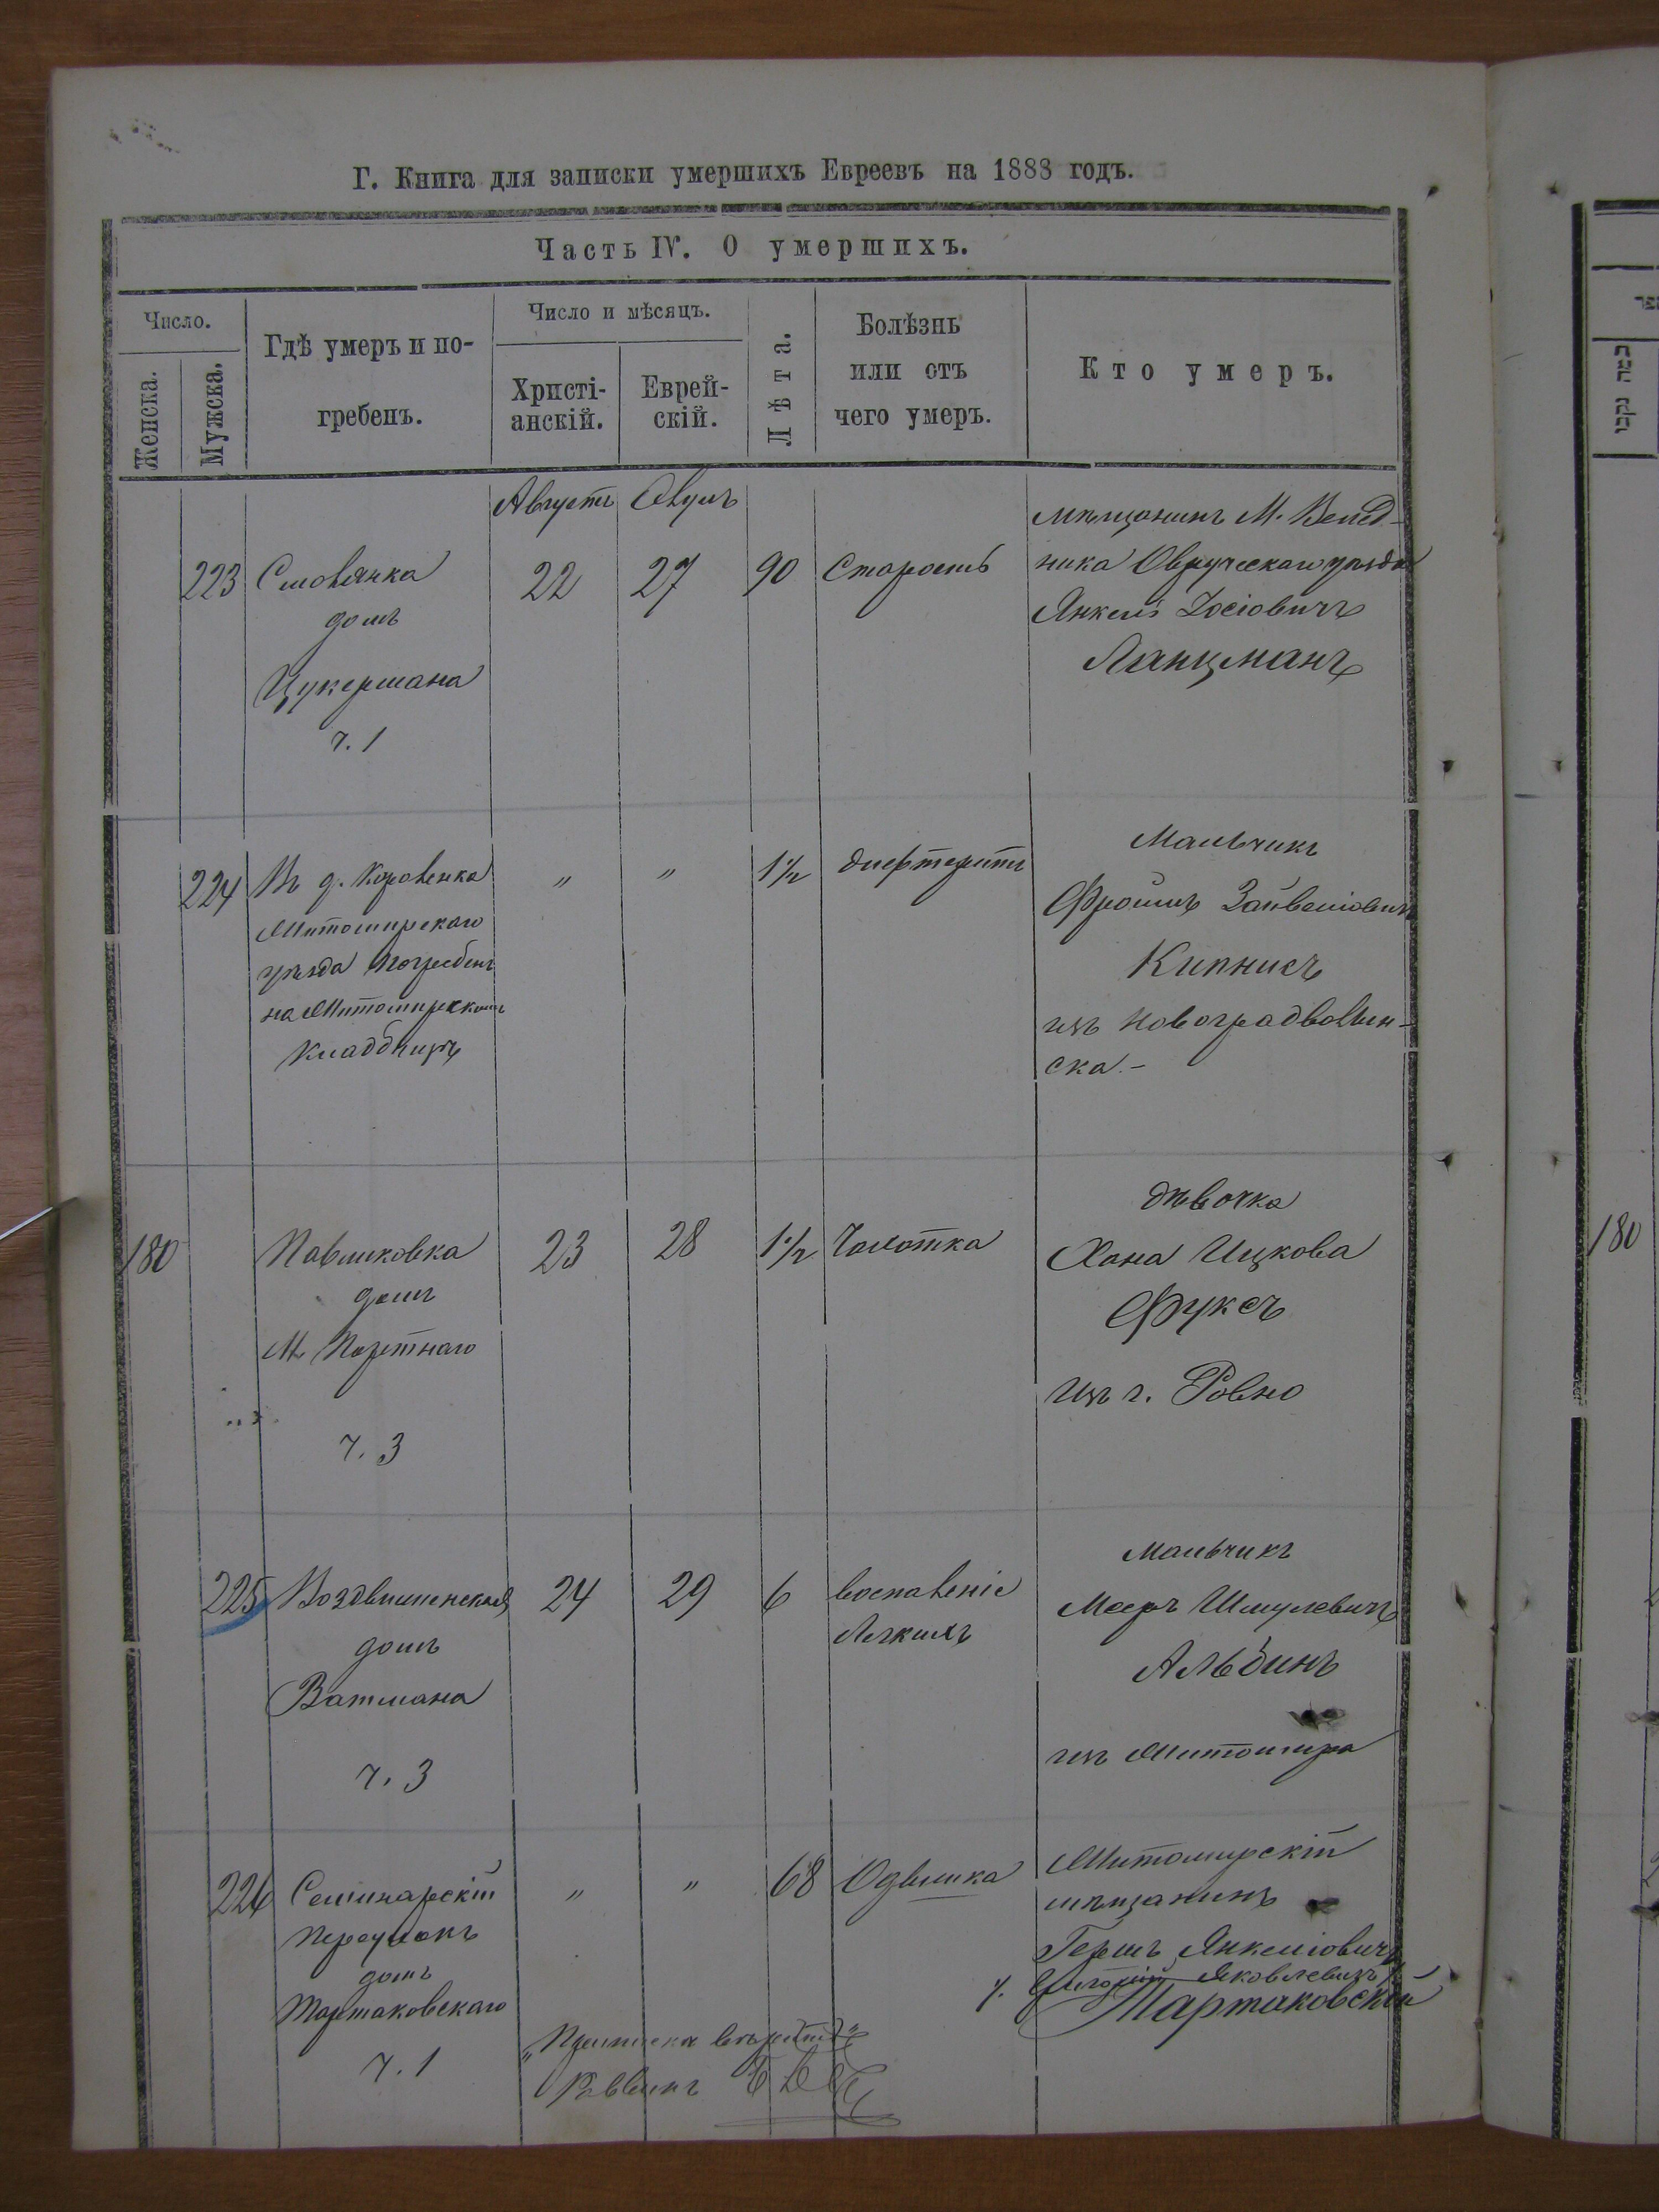 Г. Книга для записки умершихъ Евреевъ на 1888 годъ.
Часть IV. О умершихъ.
Число.
Женска.
Мужска.
Гдѣ умеръ и по-
гребенъ.
Число и мѣсяцъ.
Христі-
анскій.
Еврей-
скій.
Лѣта.
Болѣзнь
или отъ
чего умеръ.
Кто умеръ.
Августъ
Элулъ
223
Смолянка
домъ
Цукермана
ч. 1
22
27
90
Старость
мѣщанинъ М. Велед-
ника Овручскаго уѣзда
Янкель Іосіовичъ
Ланцманъ
224
Въ д. Коровенка
Житомирскаго
уѣзда погребенъ
на Житомирскомъ
Кладбищѣ
"
"
1½
дифтеритъ
Мальчикъ
Фроимъ Зайвеліовичъ
Кипнисъ
изъ Новоградволын-
ска.-
180
Павликовка
домъ
М. Портнаго
ч. 3
23
28
1½
Чахотка
дѣвочка
Хана Ицкова
Фуксъ
Изъ г. Ровно
225
Воздвиженская
домъ
Ватмана
ч. 3
24
29
6
воспаленіе
Легкихъ
Мальчикъ
Мееръ Шмулевичъ
Альбинъ
изъ Житомира
226
Семинарскій
переулокъ
домъ
Тартаковскаго
ч. 1
"
"
68
Одышка
Житомирскій
мѣщанинъ
Гершъ Янкеліовичъ
Яковлевичъ
Тартаковскій
Раввинъ
180
כמה נקבו